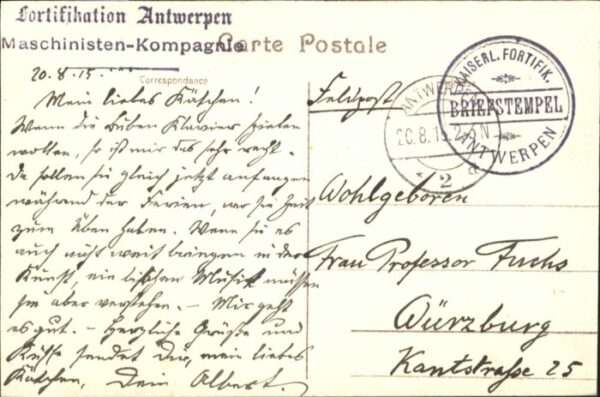 Fortifikation Antwerpen
Maschinisten-Kompagnie
Carte Postale
Correspondance
20.8.15.
Mein liebes Kätchen!
Wenn die Buben Klavier spielen
wollen, so ist mir das sehr recht.
Da sollen sie gleich jetzt anfangen
während der Ferien, wo sie Zeit
zum Üben haben. Wenn sie es
auch nicht weit bringen in der
Kunst, ein bischen Musik müssen
sie aber verstehen. – Mir geht
es gut. – Herzliche Grüße und
Küsse sendet Dir, mein liebes
Kätchen, Dein Albert.
Feldpost
ANTWERPEN
20.8.15. 2-3 N
* 2
KAISERL. FORTIFIK.
BRIEFSTEMPEL
ANTWERPEN
Wohlgeboren
Frau Professor Fuchs
Würzburg
Kantstrasse 25